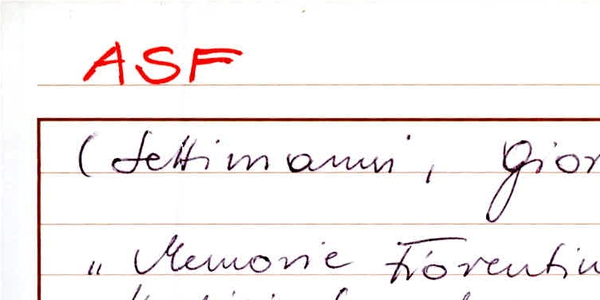 ASF
(Settimanni, Gior
„ Memorie Fiorentin